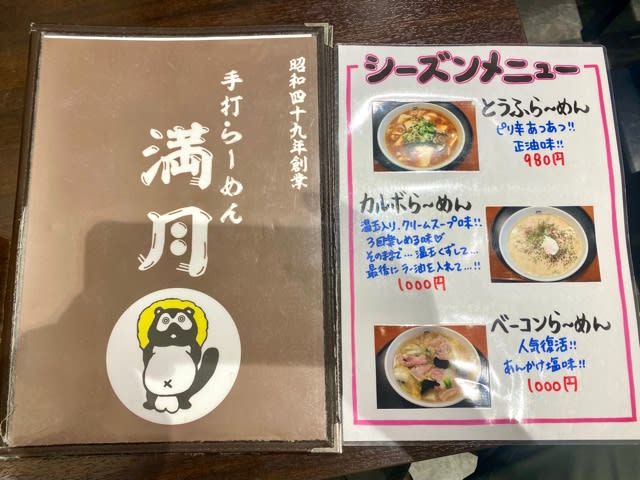 昭和四十九年創業
手打らーめん
満月
シーズンメニュー
とうふら〜めん
ピリ辛あつあつ!!
正油味!!
980円
カルボら〜めん
温玉入り、クリームスープ味!!
3回楽しめる味♡
そのままで…温玉くずして…
最後にラー油を入れて…!!
1000円
ベーコンら〜めん
人気復活!!
あんかけ塩味!!
1000円